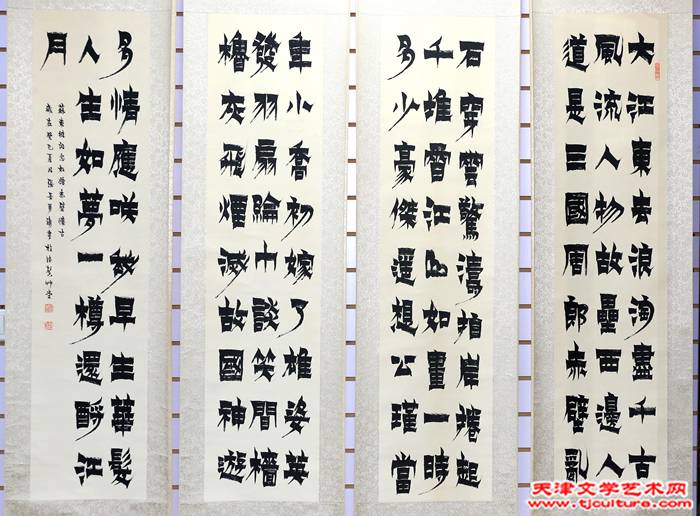 大江東去浪淘盡千古
風流人物故壘西邊人
道是三國周郎赤壁亂
石穿雲驚濤拍岸捲起
千堆雪江山如畫一時
多少豪傑遥想公瑾當
年小喬初嫁了雄姿英
發羽扇綸巾談笑間檣
櫓灰飛煙滅故國神遊
多情應咲我早生華髮
人生如夢一樽還酹江
月
蘇東坡詞念奴嬌赤壁懷古
歲在癸巳夏月
天津文学艺术网
www.tjculture.com